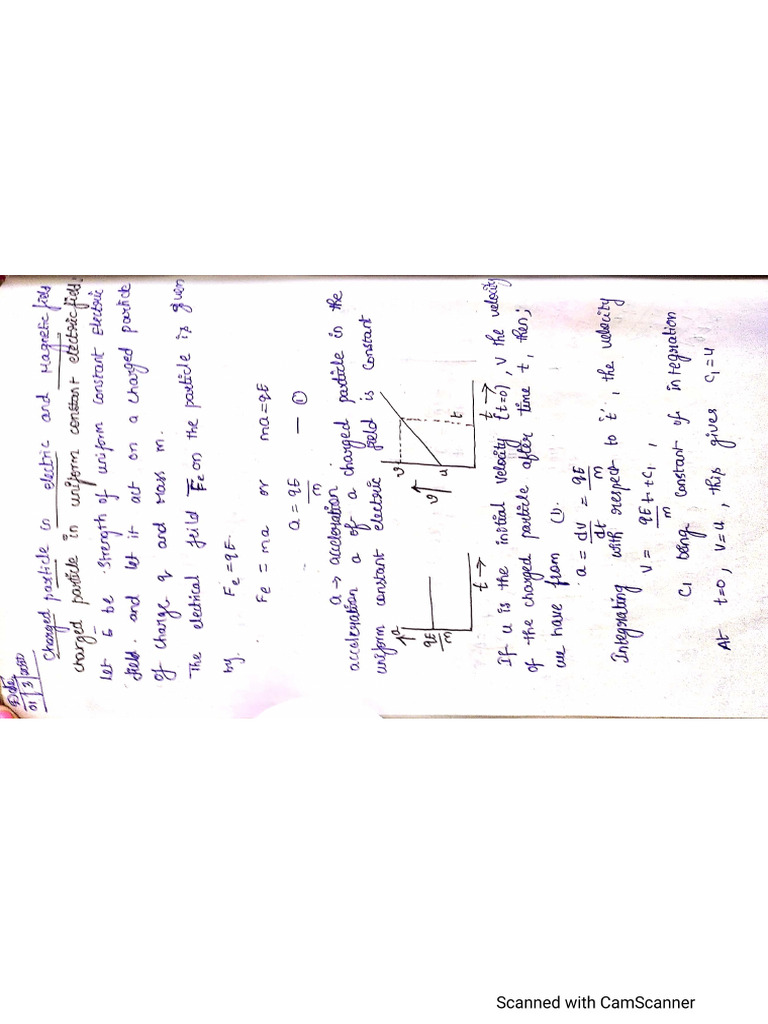 Date
01/3/2020
Charged particle in electric and Magnetic field
charged particle in uniform constant electric field:
Let E be strength of uniform constant Electric
field. and let it act on a charged particle
of charge q and Mass m.
The electrical feild Fe on the particle is given
by.
Fe = qE.
Fe = ma or ma = qE
a = qE/m — ①
a → accleration.
accleration a of a charged particle in the
uniform constant electric field is constant
a
qE/m
t →
v
v
u
t
t →
If u is the initial velocity (t=0), v the velocity
of the charged particle after time t, then;
we have from ①.
a = dv/dt = qE/m
Integrating with respect to 't', the velocity
v = qE/m t + c₁,
C₁ being constant of integration
At t=0, v=u, this gives c₁=u
Scanned with CamScanner